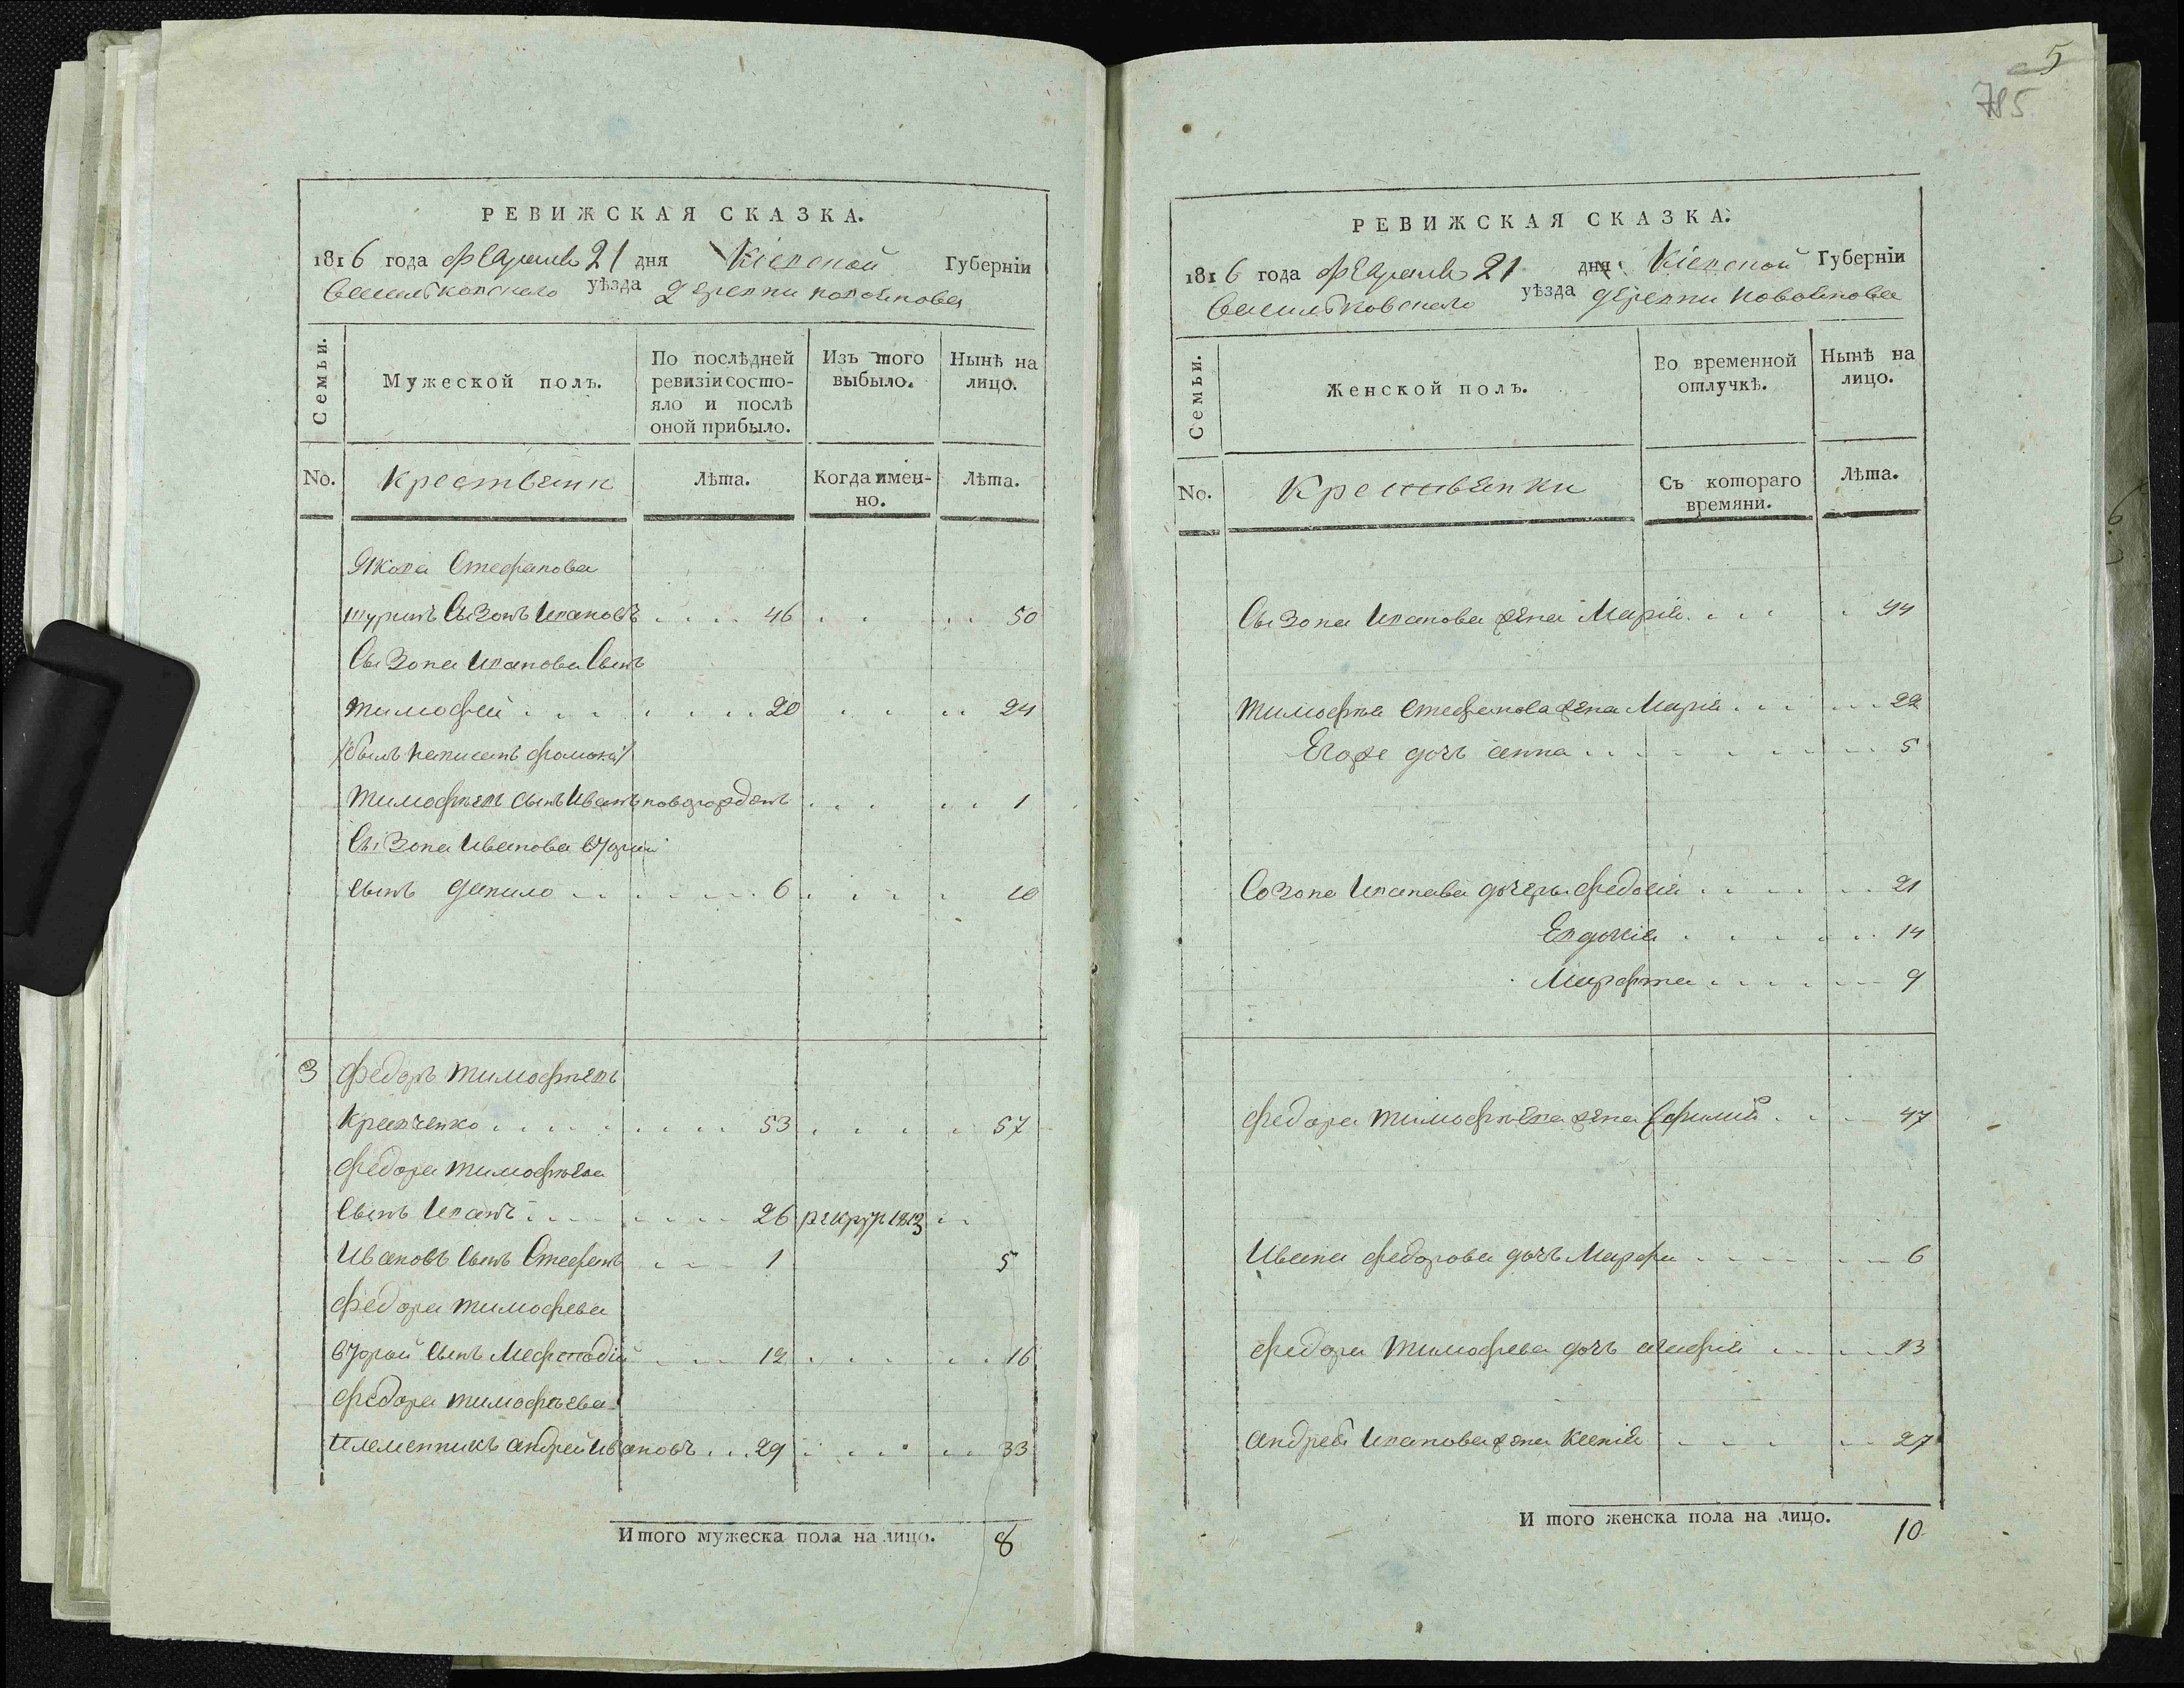 РЕВИЖСКАЯ СКАЗКА.
1816 года февраля 21 дня Кіевской Губерніи
Васильковскаго уѣзда деревни
Семьи.
Мужеской полъ.
По послѣдней ревизіи состо-
яло и послѣ
оной прибыло.
Изъ того выбыло.
Нынѣ на лицо.
No.
Крестьяни
Лѣта.
Когда имен-
но.
Лѣта.
Якова Стефанова
шуринъ Сызонъ Ивановъ 46 50
Сызона Иванова Сынъ
Тимофей 20 24
Тимофѣевъ сынъ Иванъ новорожденъ 1
Сызона Иванова второй
сынъ данило 6 10
3 Федоръ Тимофѣевъ
Кравченко 53 57
Федора Тимофѣева
Сынъ Иванъ 26 рекрут 1813
Ивановъ Сынъ Стефанъ 1 5
Федора Тимофева
второй Сынъ Мефтодій 12 16
Федора Тимофѣева
племенникъ андрей Ивановъ 29 33
Итого мужеска пола на лицо. 8
5
785
РЕВИЖСКАЯ СКАЗКА.
1816 года февраля 21 дня Кіевской Губерніи
Васильковскаго уѣзда деревни
Семьи.
Женской полъ.
Во временной
отлучкѣ.
Нынѣ на
лицо.
No.
Крестьянки
Съ котораго
времяни.
Лѣта.
Сызона Иванова жена Марія 44
Тимофѣя Стефанова жена Марія 22
Егоже дочь анна 5
Созона Иванава дочеры Федосія 21
Евдокія 14
Марфта 9
Федора Тимофѣева жена Ефимия 47
Ивана Федорова дочь Марфа 6
Федора Тимофева дочь агафія 13
андрея Иванова жена Ксенія 27
И того женска пола на лицо. 10